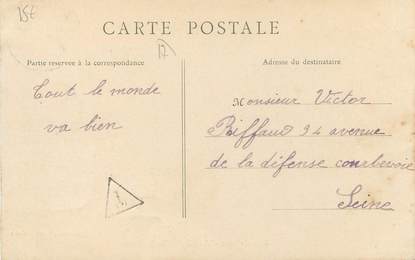 15€
CARTE POSTALE
17
Partie réservée à la correspondance
Adresse du destinataire
Tout le monde
va bien
Monsieur Victor
Biffaud 94 avenue
de la défense courbevoie
Seine